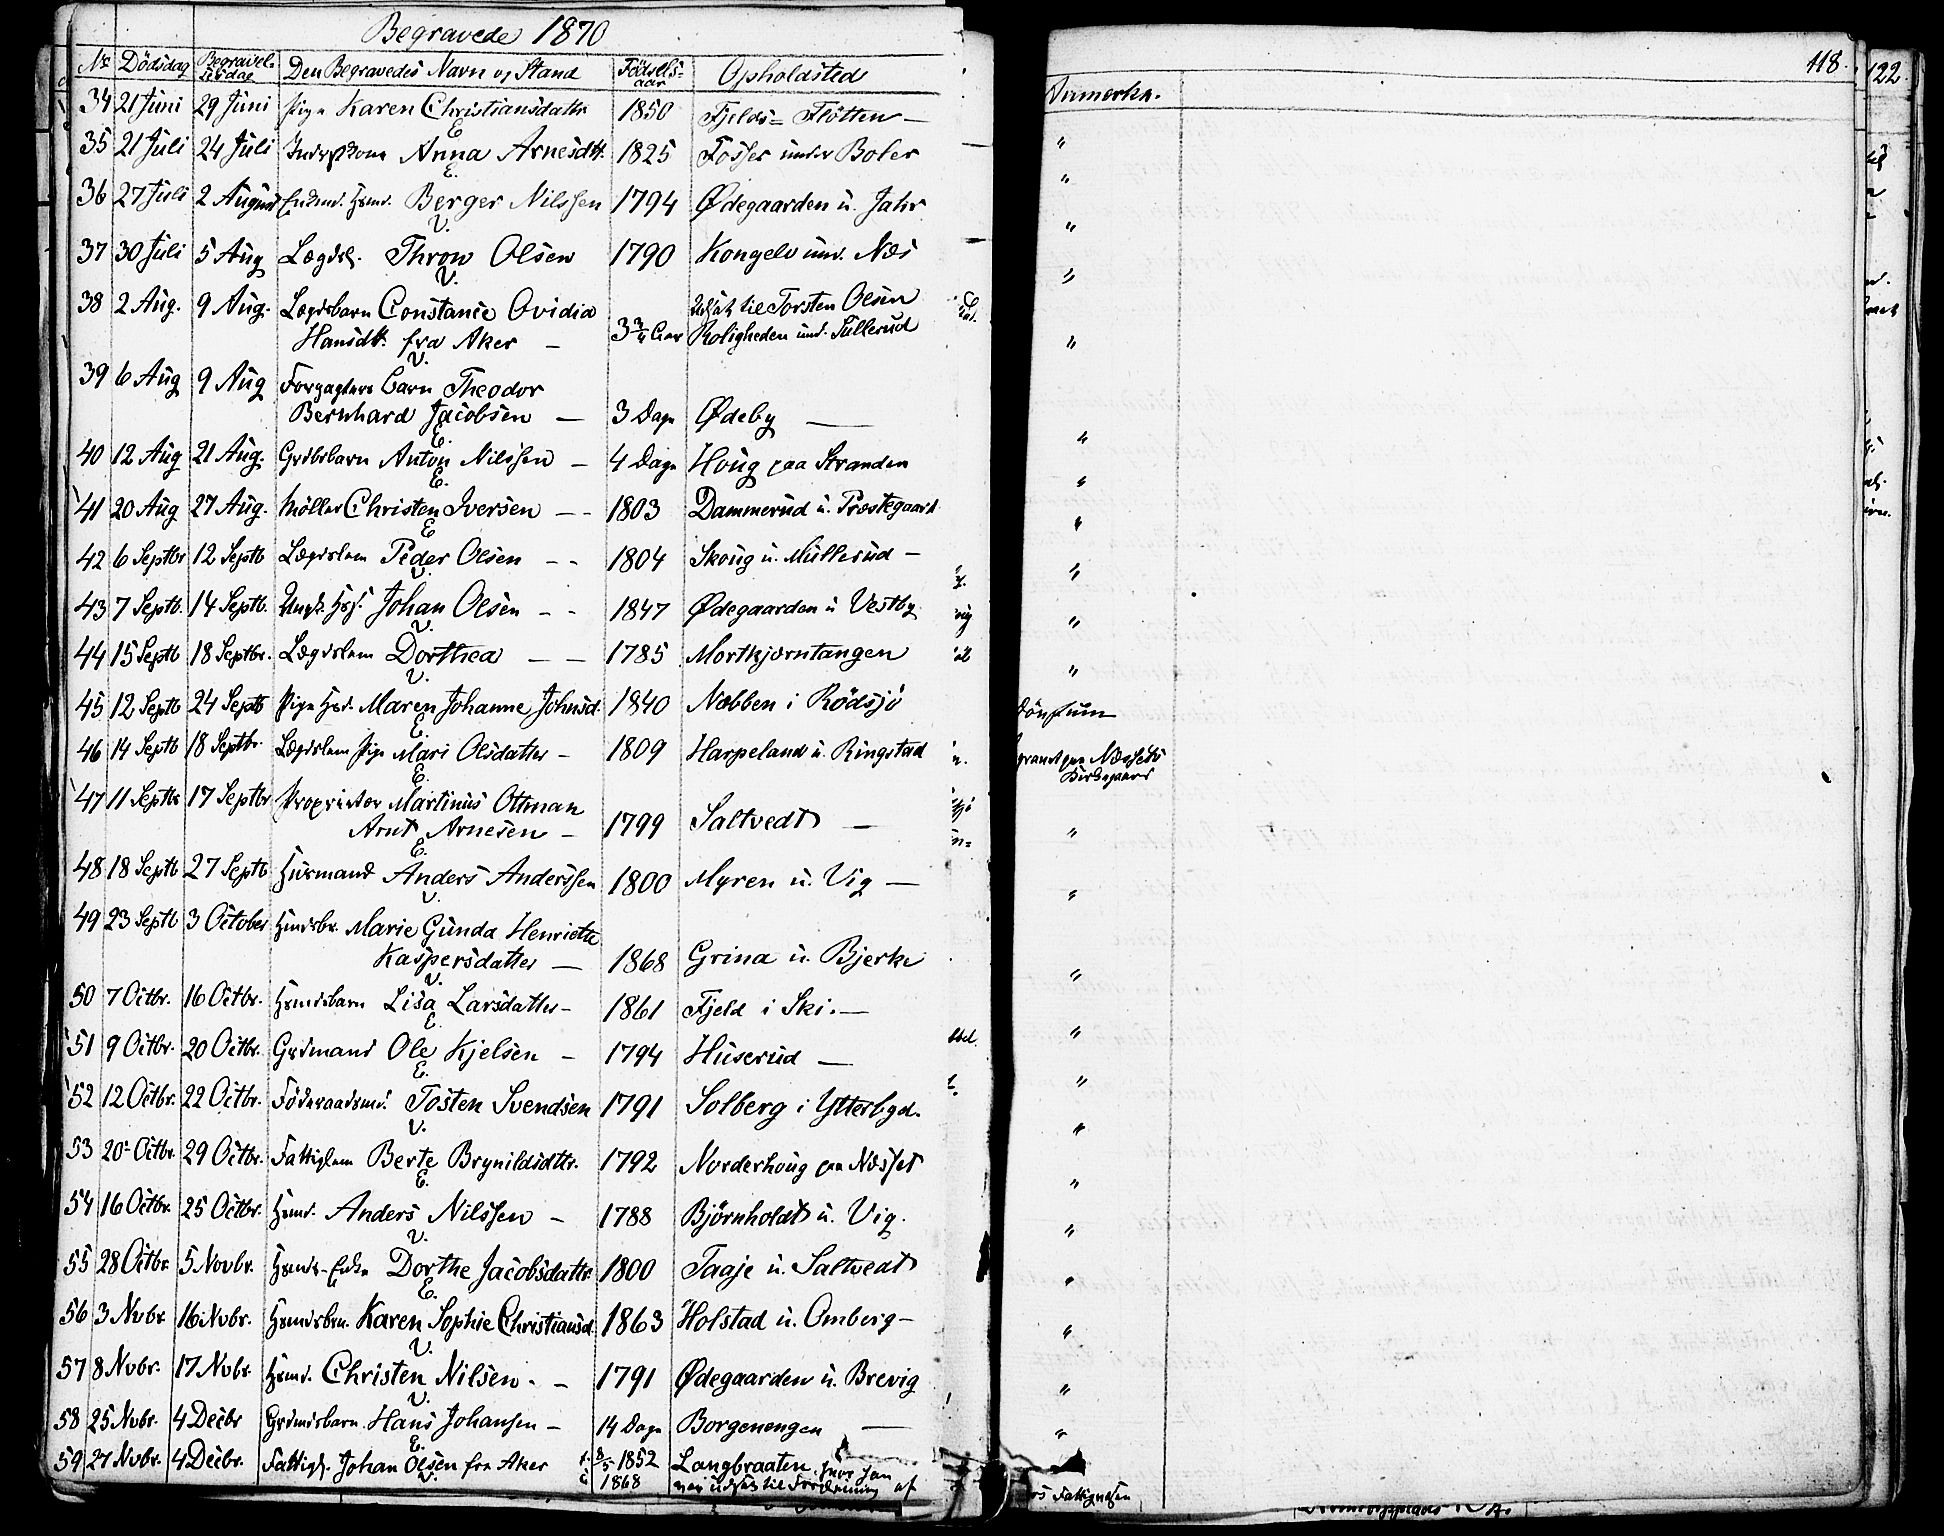 Begravede 1870
118.
122.
No Dödsdag Begravelsesdag Den Begravedes Navn og Stand Födsels-aar Opholdsted Anmerkn.
34 21 Juni 29 Juni Pige Karen Christiansdattr. 1850 Fjelds= Flötten —
E.
35 21 Juli 24 Juli Anna Arnesdtt. 1825 Fosser under Boler "
E.
36 27 Juli 2 August Enkemd. Hsmd. Berger Nilssen 1794 Ødegaarden u. Jahr "
V.
37 30 Juli 5 Aug Lægdsl. Thron Olsen 1790 Kongelv und. Næs "
V.
38 2 Aug. 9 Aug. Lægdsbarn Constance Ovidia udsat til Torsten Olsen "
Hansdtt. fra Aker — 3 3/4 Aar Roligheden und. Tullerud "
V.
39 6 Aug 9 Aug Forpagters barn Theodor
Bernhard Jacobsen — 3 Dage Ødeby — "
E.
40 12 Aug 21 Aug. Grdbrbarn Anton Nilssen — 4 Dage Houg paa Stranden "
E.
41 20 Aug 27 Aug. Möller Christen Iversen — — 1803 Dammerud u. Præstegaard "
E
42 6 Septbr 12 Septb Lægdslem Peder Olsen — — 1804 Skoug u. Mullerud — "
V.
43 7 Septb. 14 Septb. Ungk. Johan Olsen — — 1847 Ødegaarden u Vestby "
V.
44 15 Septb 18 Septbr. Lægdslem Dorthea — — 1785 Mortkjærntangen "
V.
45 12 Septb 24 Septb Pige Maren Johanne Johnsd. 1840 Næbben i Rödsjö
E.
46 14 Septb 18 Septbr. Lægdslem Pige Mari Olsdatter — 1809 Harpeland u. Ringstad paa Næssets
Kirkegaard
E.
47 11 Septbr 17 Septbr Proprietær Martinus Ottman
Arnt Arnesen — 1799 Saltvedt — "
E.
48 18 Septb 27 Septb Husmand Anders Anderssen 1800 Myren u. Vig — "
V.
49 23 Septb 3 October Hmdsbr. Marie Gunda Henriette
Kaspersdatter — 1868 Grina u. Bjerke "
V.
50 7 Octbr. 16 Octbr. Hsmdsbarn Lisa Larsdatter — 1861 Fjeld i Ski. — "
E.
51 9 Octbr. 20 Octbr. Grdmand Ole Kjelsen — 1794 Huserud — "
E.
52 12 Octbr. 22 Octbr. Föderaadsmd. Tosten Svendsen 1791 Solberg i Ytterbygd. "
V.
53 20 Octbr. 29 Octbr. Fattiglem Berte Brynildsdttr. 1792 Norderhoug paa Næsset "
E.
54 16 Octbr. 25 Octbr. Hsmd. Anders Nilssen — 1788 Björnholdt u. Vig. "
V.
55 28 Octbr 5 Novbr. Hsmds-Enke Dorthe Jacobsdattr. 1800 Taaje u. Saltvedt "
E.
56 3 Nvbr 16 Nvbr. Hsmdsbrn. Karen Sophie Christiansd. 1863 Holstad u. Omberg — "
V.
57 8 Nvbr. 17 Nvbr. Hsmd. Christen Nilsen. — 1791 Ødegaarden u. Brevig "
V.
58 25 Nvbr. 4 Decbr Grdmdsbarn Hans Johansen — 14 Dage Borgenengen — "
E.
59 27 Nvbr. 4 Decbr. Fattigl. Johan Olsen fra Aker 1852 Langbraaten, hvor han
V. 1868 var udsat til Fordrening af Fattigvæsen